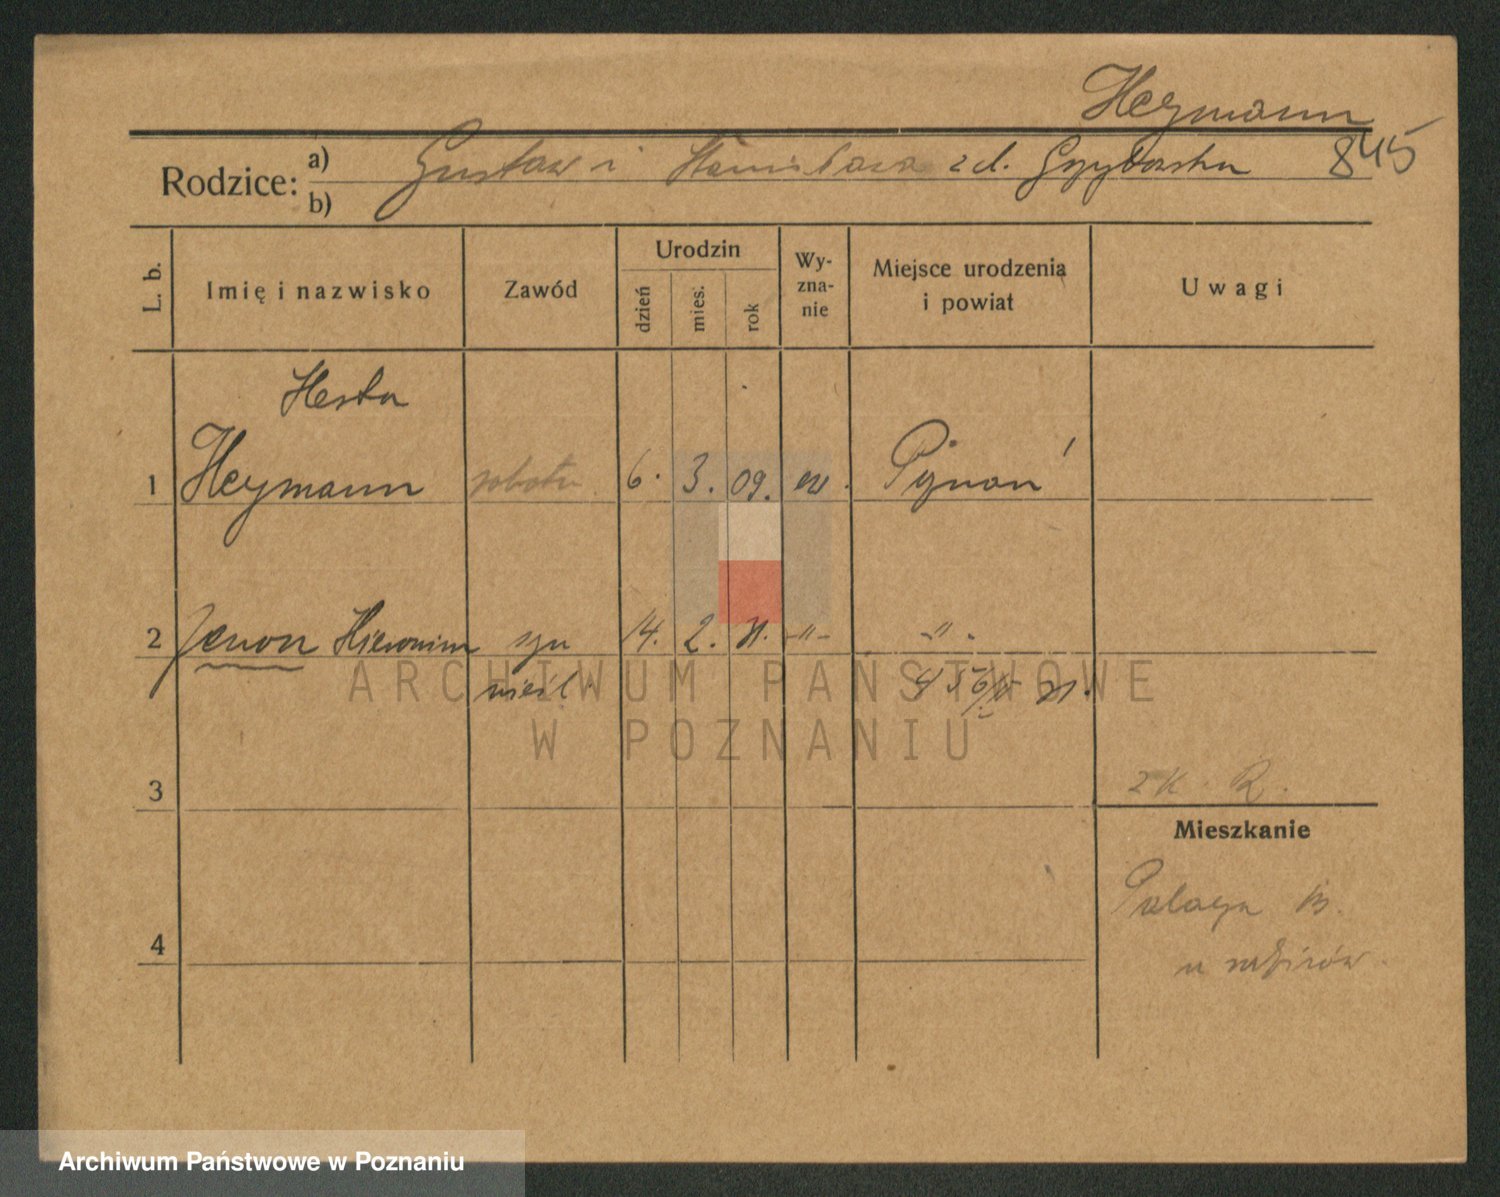 Heymann
845
Rodzice: a) Gustaw i Stanisława z d. Grzybowska
b)
L. b. Imię i nazwisko Zawód Urodzin dzień mies. rok Wyznanie Miejsce urodzenia i powiat Uwagi
Herta
1 Heymann robotn. 6. 3. 09. ew.
2 Zenon Hieronim syn 14. 2. 31. -"- -"-
nieśl.
3
zk. R.
Mieszkanie
4
ARCHIWUM PAŃSTWOWE
W POZNANIU
Archiwum Państwowe w Poznaniu